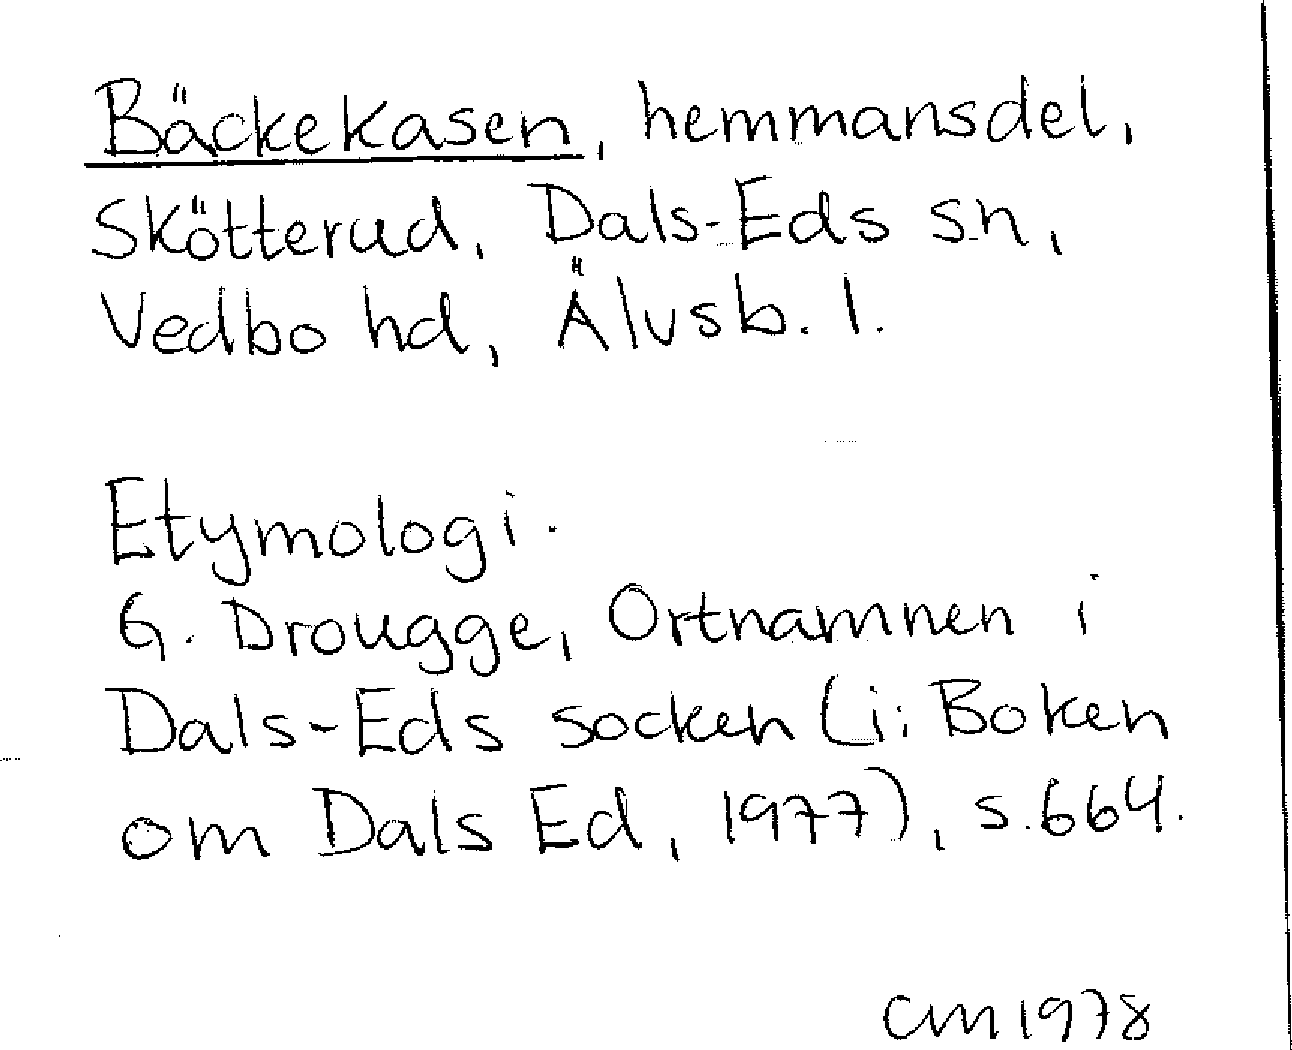 Bäckekasen, hemmansdel,
Skötterud, Dals-Eds sn,
Vedbo hd, Älvsb. l.
Etymologi.
G. Drougge, Ortnamnen i
Dals-Eds socken (i: Boken
om Dals Ed, 1977), s. 664.
CM 1978